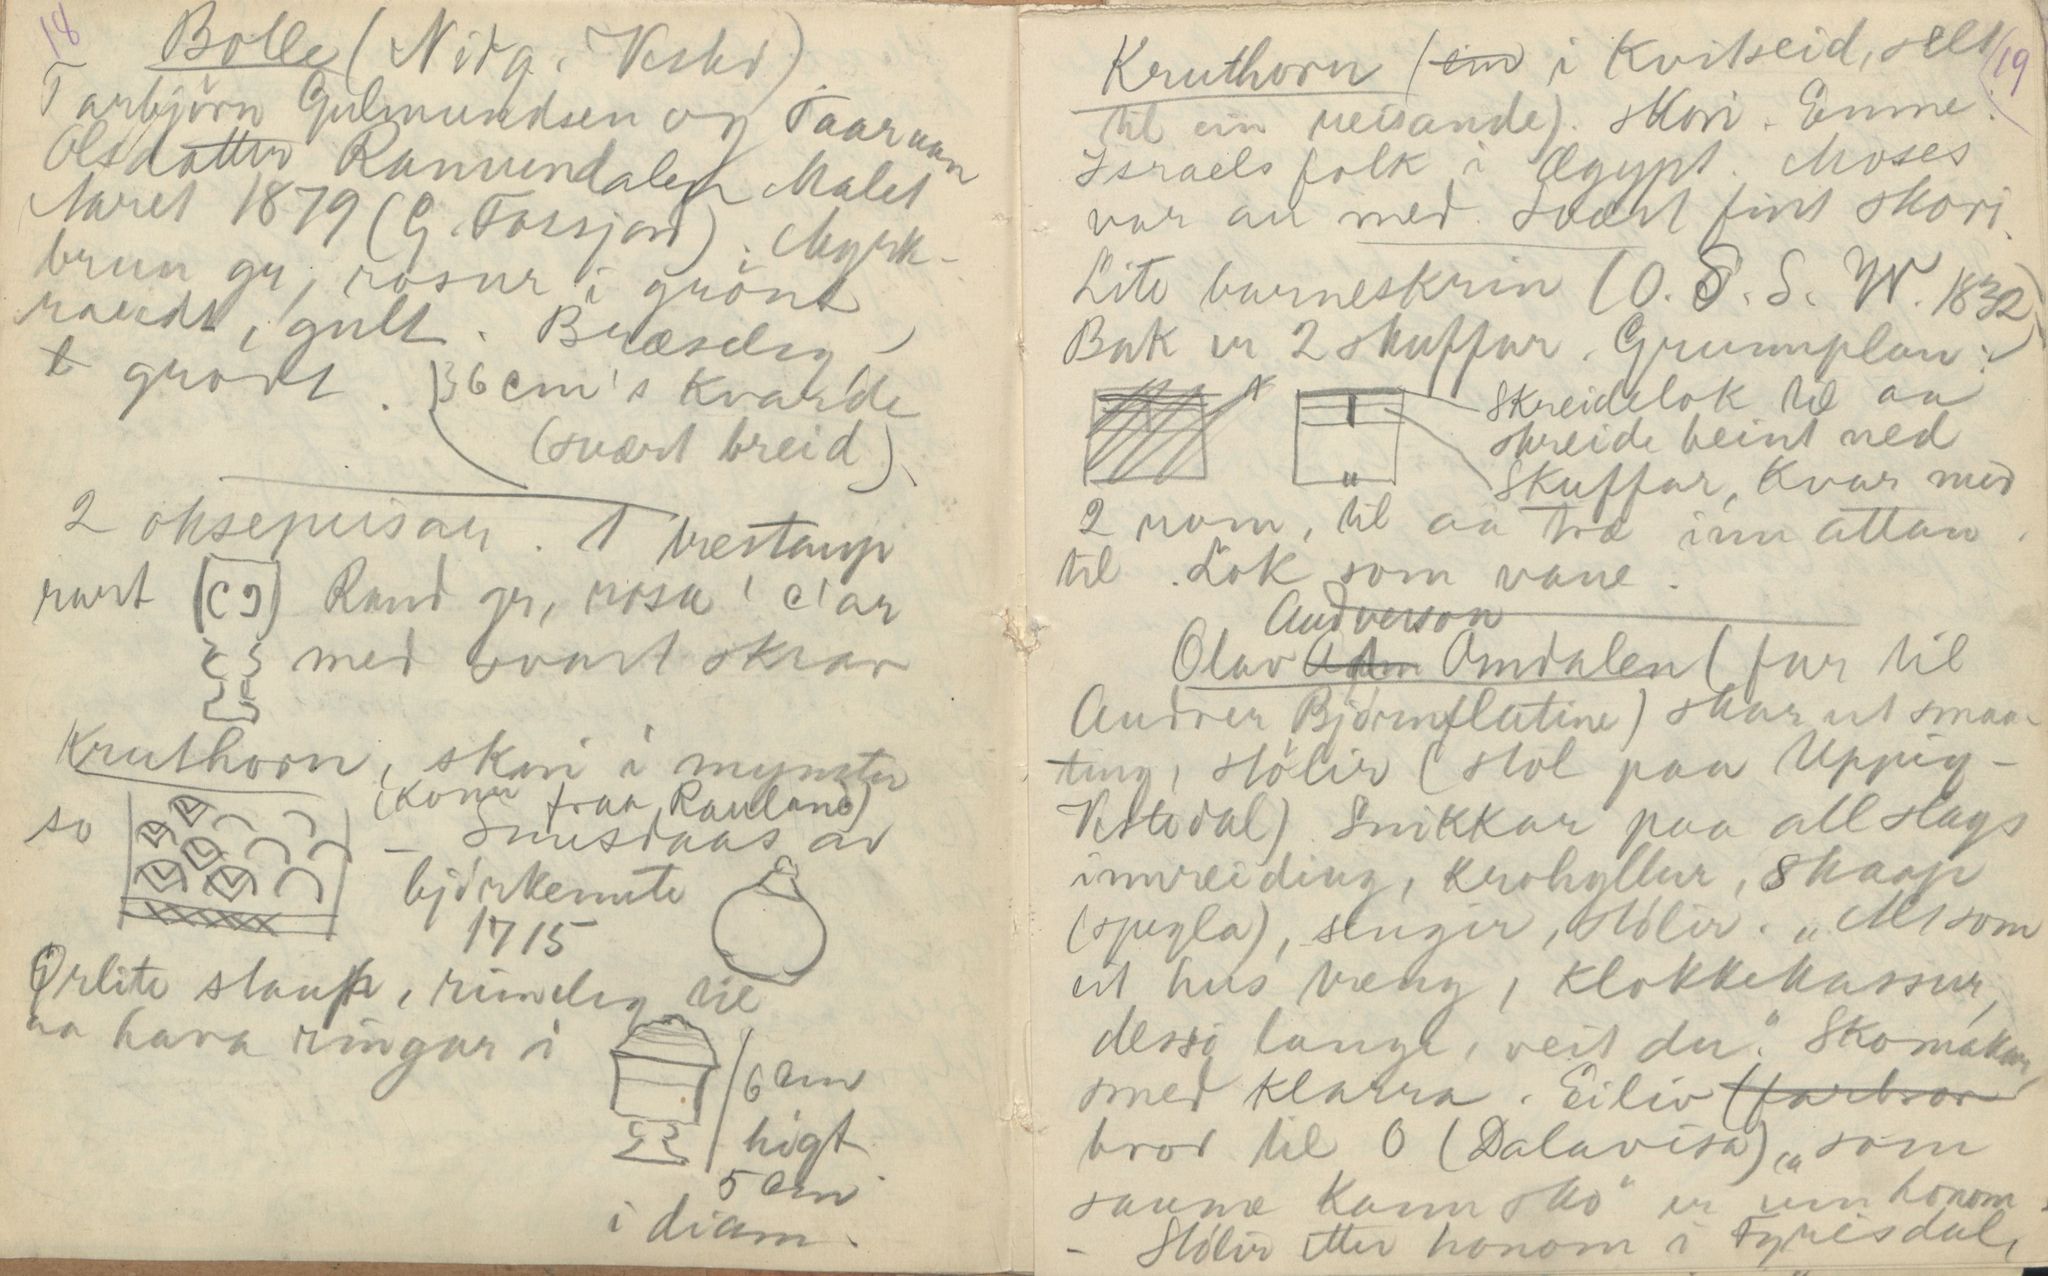 18
Bolle (Nidg. i Vestrd)
Tarbjörn Gulmundsen og Taaraan
Olsdatter Ramundalen Malet
Aaret 1879 (G. Fossjord). Myrk-
brun gr, rosur i grönt
raudt, gult. Bræsdeg,
grönt. 36 cm's kvarde
(svært breid)
2 oksepeisar. 1 trestaup
rart Rand gr, rosa 'c'ar
med svart skrav
Kruthorn, skori i mynster
(Kome fraa Rauland)
so – Snusdaas av
björkenute
1715
Örlite staup, rimeleg til
aa hava ringar i
6 cm
högt
5 cm
i diam.
19
Kruthorn (i Kvitseid, selt
til ein reisande). Skori. Emne:
Israels folk i Ægypt. Moses
var au med. Svært fint skori.
Lite barneskrin (O. S. S. W. 1832)
Bak er 2 skuffur. Grunnplan:
Skreidelok til aa
skreide beint ned
Skuffar, kvar med
2 rom, til aa træ inn attan
til. Lok som vane.
Andverson
Olav Omdalen (far til
Andver Björnflatine) skar ut smaa-
ting, stölir (stol paa Uppig-
Vistedal) Snikkar paa all slags
innreiding, krohyllur, skaap
(spegla), sengir, stölir. "Alt som
eit hus træng, klokkekassur,
desse lange, veit du." Skomakar,
smed klarra. Eiliv (farbror
bror til O (Dalavisa) "som
saume kann sko" er um honom
– Stölir etter honom i Fyrisdal,